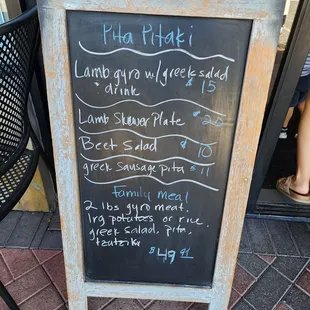 Pita Pitaki
Lamb gyro w/greek salad
+ drink $15
Lamb Skewer Plate $20
Beet Salad $10
greek Sausage pita $11
family meal
2 lbs gyro meat,
lrg potatoes or rice,
greek salad, pita,
tzatziki
$49.95